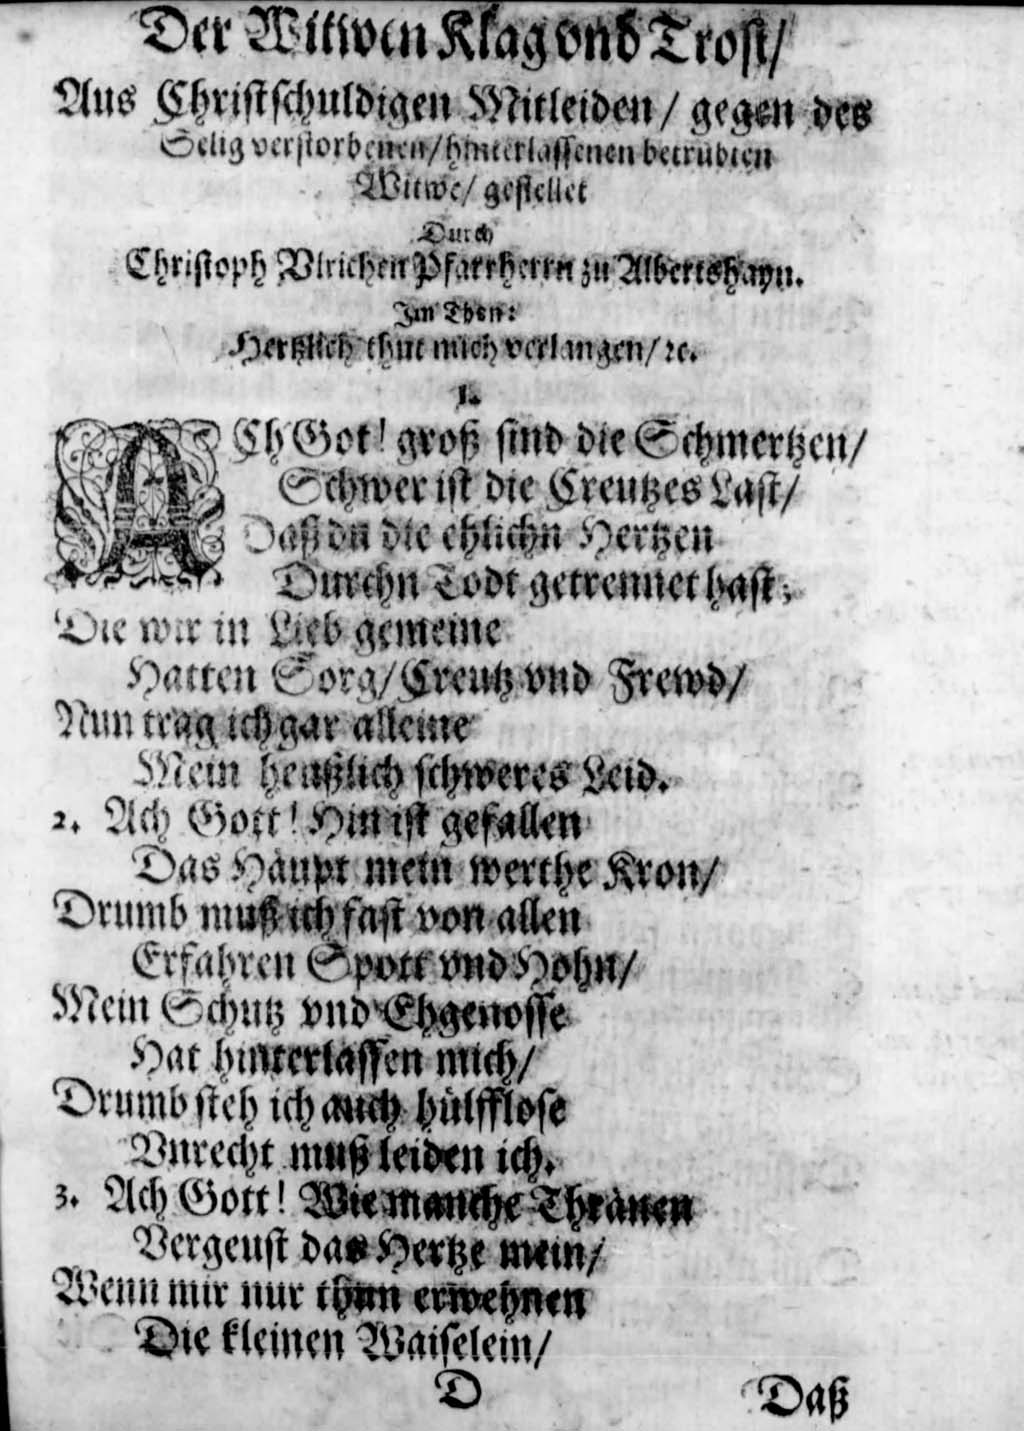 Der Witwen Klag vnd Trost/
Aus Christschuldigen Mitleiden / gegen des
Selig verstorbenen/hinterlassenen betrübten
Witwe/ gestellet
Durch
Christoph Vlrichen Pfarrherrn zu Albertshayn.
Im Thon:
Hertzlich thut mich verlangen/ ꝛc.
1.
ACh Got! groß sind die Schmertzen/
Schwer ist die Creutzes Last/
Daß du die ehlichn Hertzen
Durchn Todt getrennet hast;
Die wir in Lieb gemeine
Hatten Sorg/Creutz vnd Frewd/
Nun trag ich gar alleine
Mein hertzlich schweres Leid.
2. Ach Gott! Hin ist gefallen
Das Häupt mein werthe Kron/
Drumb muß ich fast von allen
Erfahren Spott vnd Hohn/
Mein Schutz vnd Ehgenosse
Hat hinterlassen mich/
Drumb steh ich auch hülfflose
Vnrecht muß leiden ich.
3. Ach Gott! Wie manche Thränen
Vergeust das Hertze mein/
Wenn mir nur thun erwehnen
Die kleinen Waiselein/
D
Daß